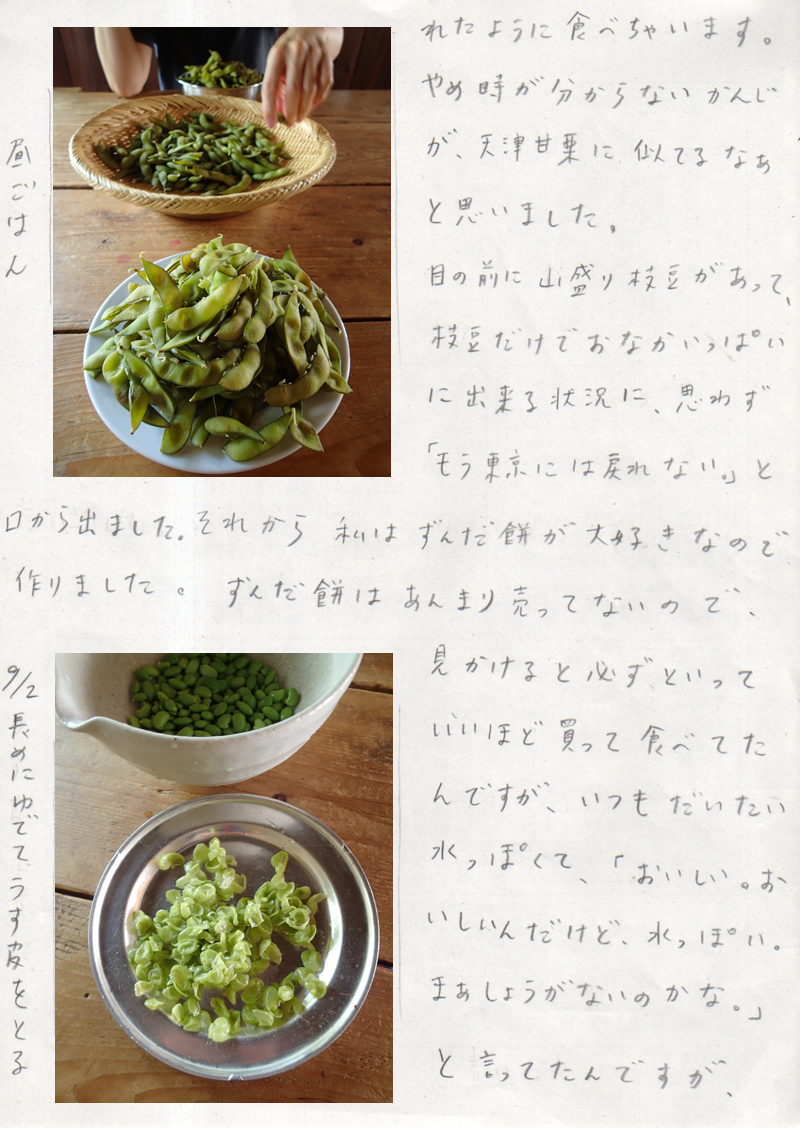 れたように食べちゃいます。
やめ時が分からないかんじ
が、天津甘栗に似てるなぁ
と思いました。
目の前に山盛り枝豆があって、
枝豆だけでおなかいっぱい
に出来る状況に、思わず
「もう東京には戻れない。」と
口から出ました。それから私はずんだ餅が大好きなので、
作りました。ずんだ餅はあんまり売ってないので、
見かけると必ずといって
いいほど買って食べてた
んですが、いつもだいたい
水っぽくて、「おいしい。お
いしいんだけど、水っぽい。
まぁしょうがないのかな。」
と言ってたんですが、
昼ごはん
9/2 長めにゆでて、うす皮をとる